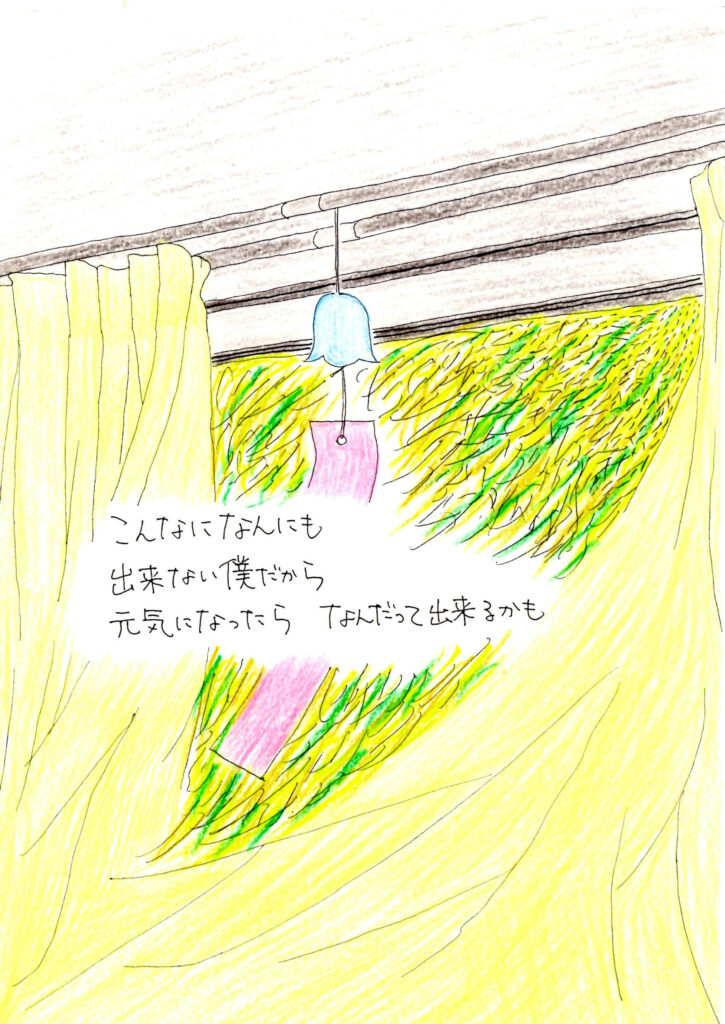 こんなになんにも
出来ない僕だから
元気になったら　なんだって出来るかも